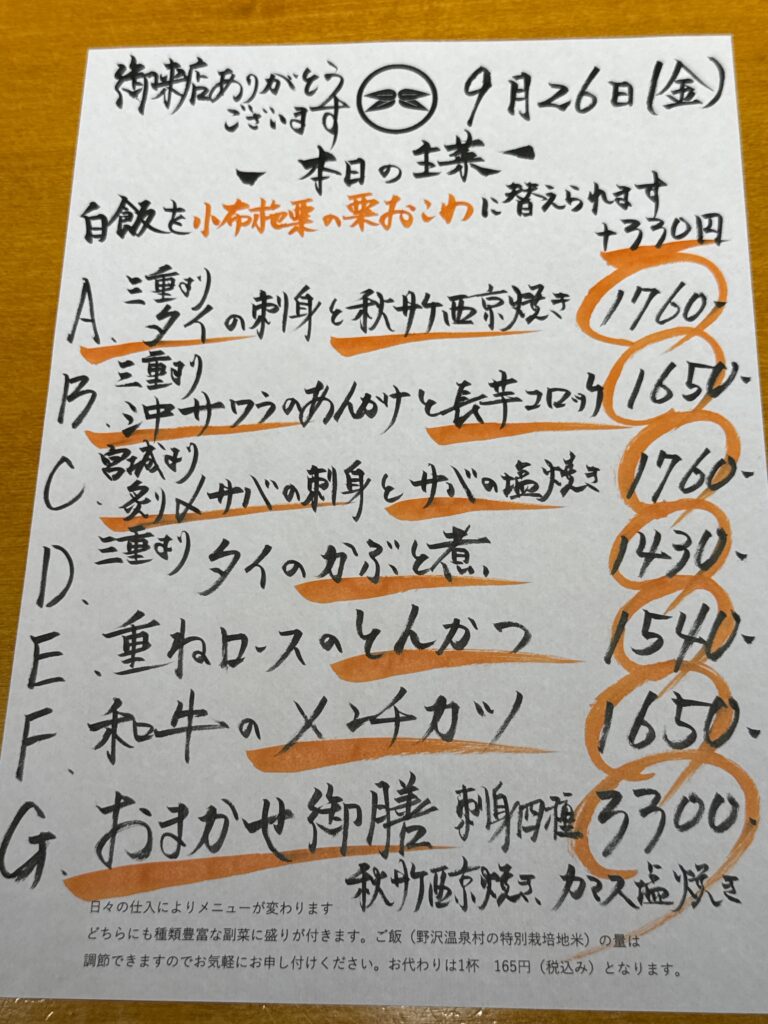 御来店ありがとう
ございます
9月26日(金)
本日の主菜
白飯を小布施栗の栗おこわに替えられます
+330円
A. 三重より
タイの刺身と秋サケ西京焼き 1760-
B. 三重より
沖サワラのあんかけと長芋コロッケ 1650-
C. 宮城より
炙り〆サバの刺身とサバの塩焼き 1760-
D. 三重より タイのかぶと煮 1430-
E. 重ねロースのとんかつ 1540-
F. 和牛のメンチカツ 1650-
G. おまかせ御膳 刺身四種 3300-
秋サケ西京焼き、カマス塩焼き
日々の仕入によりメニューが変わります
どちらにも種類豊富な副菜に盛りが付きます。ご飯(野沢温泉村の特別栽培地米)の量は
調節できますのでお気軽にお申し付けください。お代わりは1杯 165円(税込み)となります。